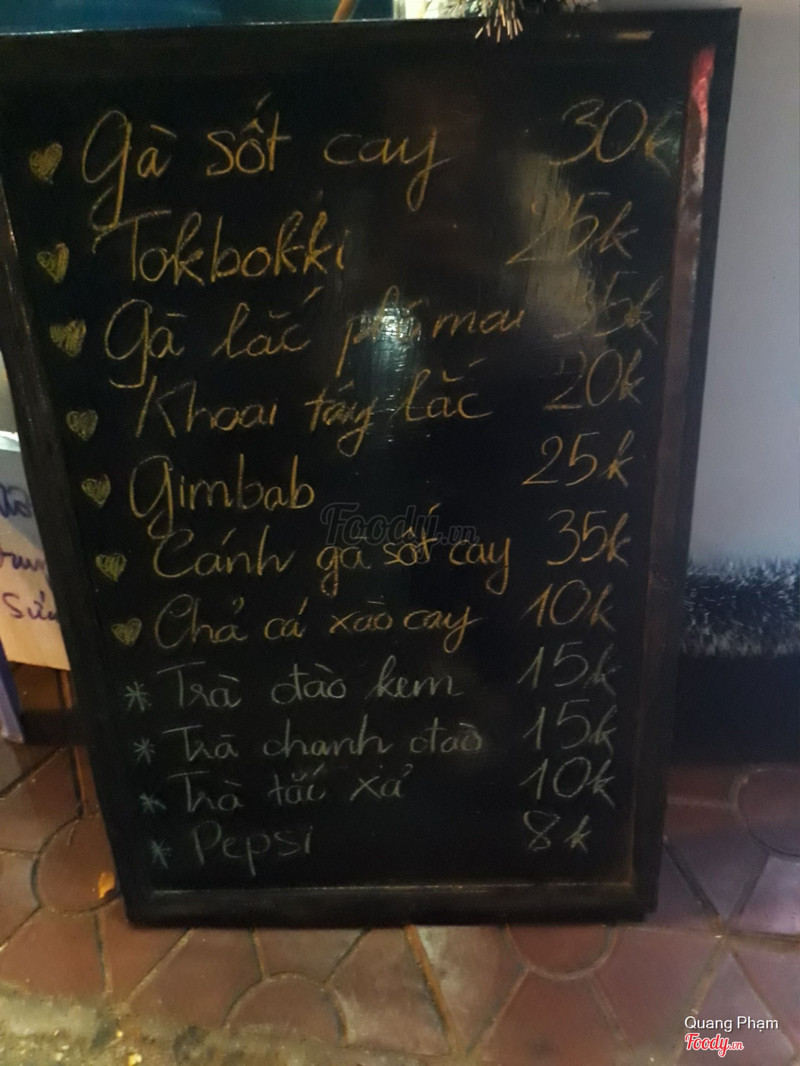 Gà sốt cay 30k
Tokbokki 25k
Gà lắc phô mai 35k
Khoai tây lắc 20k
Gimbab 25k
Foody.vn
Cánh gà sốt cay 35k
Chả cá xào cay 10k
Trà đào kem 15k
Trà chanh đào 15k
Trà tắc xả 10k
Pepsi 8k
Quang Phạm
Foody.vn